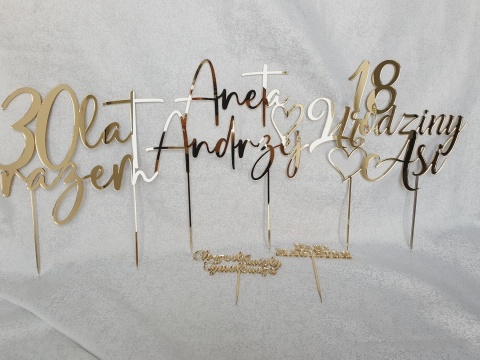 30 lat
razem
Aneta
Andrzej
18
Urodziny
Asi